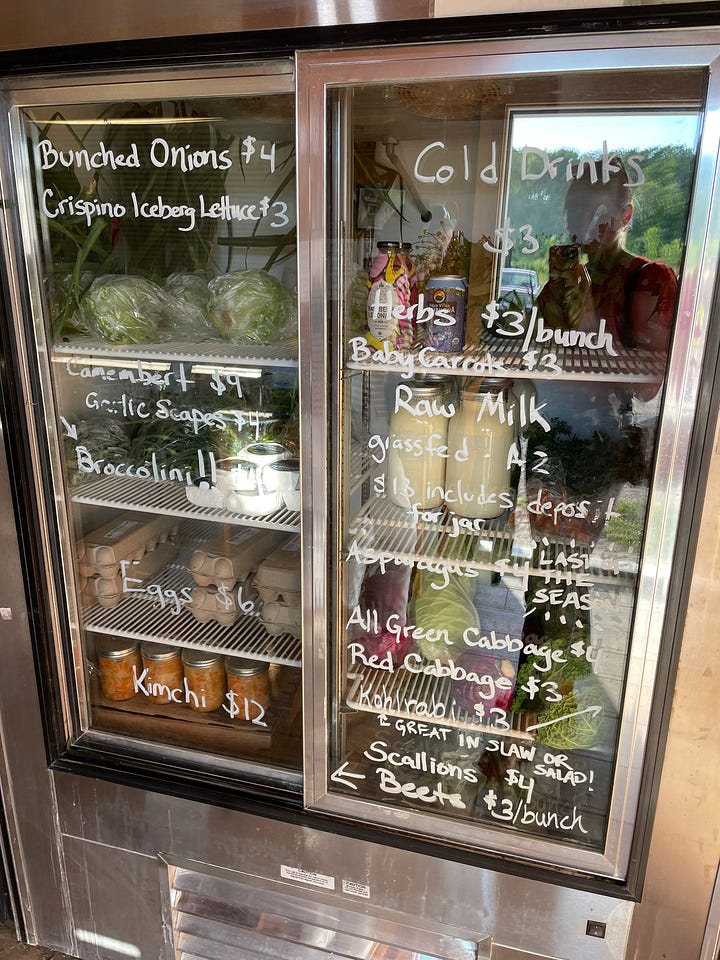 Bunched Onions $4
Crispino Iceberg Lettuce $3
Camembert $9
Garlic Scapes $4
Broccolini!!
Eggs $6
Kimchi $12
Cold Drinks
$3
Herbs $3/bunch
Baby Carrots $3
Raw Milk
grassfed - A2
$13 includes deposit
for jar
Asparagus $4
LAST
THE
SEASON
All Green Cabbage $4
Red Cabbage $3
Kohlrabi $3
GREAT IN SLAW OR
SALAD!
Scallions $4
Beets $3/bunch
CAUTION